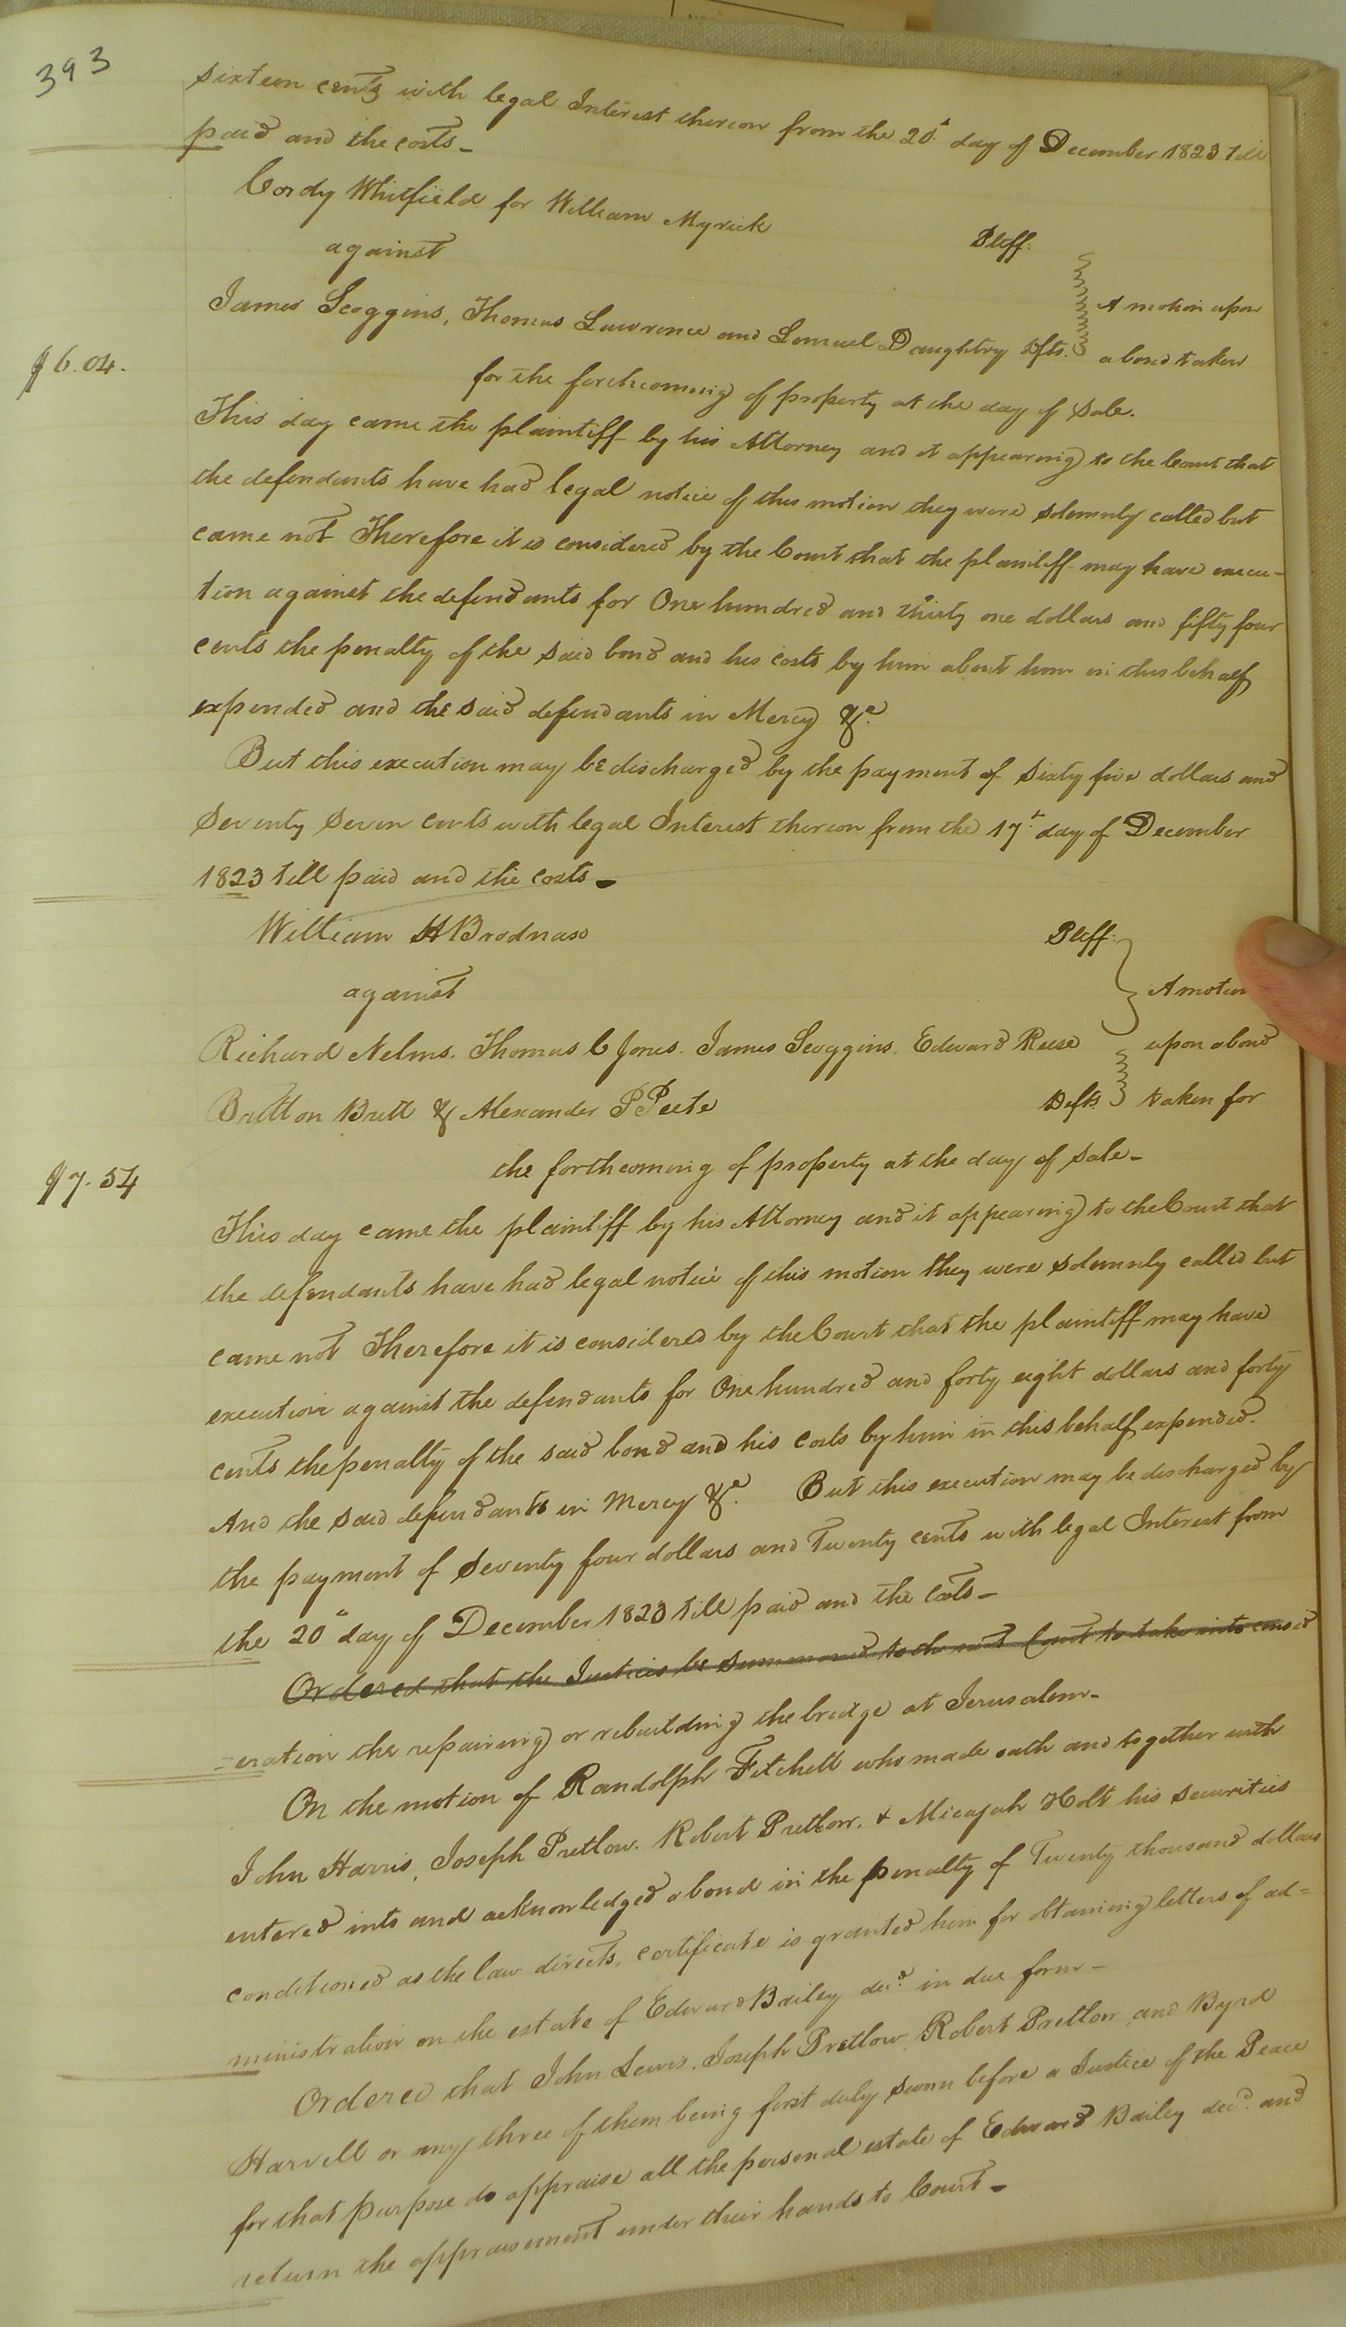 393
sixteen cents with legal Interest thereon from the 20th day of December 1823 till
paid and the costs_
Cordy Whitfield for William Myrick Pltff.
against
James Scoggins, Thomas Lawrence and Lemuel Daughtry Dfts. A motion upon
a bond taken
$6.04.
for the forthcoming of property at the day of sale.
This day came the plaintiff by his Attorney and it appearing to the Court that
the defendants have had legal notice of this motion they were solemnly called but
came not Therefore it is considered by the Court that the plaintiff may have execu-
tion against the defendants for One hundred and thirty one dollars and fifty four
cents the penalty of the said bond and his costs by him about him in this behalf
expended and the said defendants in Mercy &c.
But this execution may be discharged by the payment of sixty five dollars and
seventy seven cents with legal Interest thereon from the 17th day of December
1823 till paid and the costs_
William H Brodnax Pltff.
against A motion
Richard Nelms. Thomas C Jones. James Scoggins. Edward Reese upon a bond
Britton Britt & Alexander P Peete Defts. taken for
the forthcoming of property at the day of sale_
$7.54
This day came the plaintiff by his Attorney and it appearing to the Court that
the defendants have had legal notice of this motion they were solemnly called but
came not Therefore it is considered by the Court that the plaintiff may have
execution against the defendants for One hundred and forty eight dollars and forty
cents the penalty of the said bond and his costs by him in this behalf expended.
And the said defendants in Mercy &c. But this execution may be discharged by
the payment of seventy four dollars and Twenty cents with legal Interest from
the 20th day of December 1823 till paid and the Costs_
Ordered that the Justices be summoned to the next Court to take into consid
=eration the repairing or rebuilding the bridge at Jerusalem_
On the motion of Randolph Fitchett who made oath and together with
John Harris, Joseph Pretlow. Robert Pretlow. & Micajah Holt his securities
entered into and acknowledged a bond in the penalty of Twenty thousand dollars
conditioned as the law directs, certificate is granted him for obtaining letters of ad=
ministration on the estate of Edward Bailey decd. in due form_
Ordered that John Lewis, Joseph Pretlow, Robert Pretlow and Byrd
Harvell or any three of them being first duly sworn before a Justice of the Peace
for that purpose do appraise all the personal estate of Edward Bailey decd. and
return the appraisement under their hands to Court_